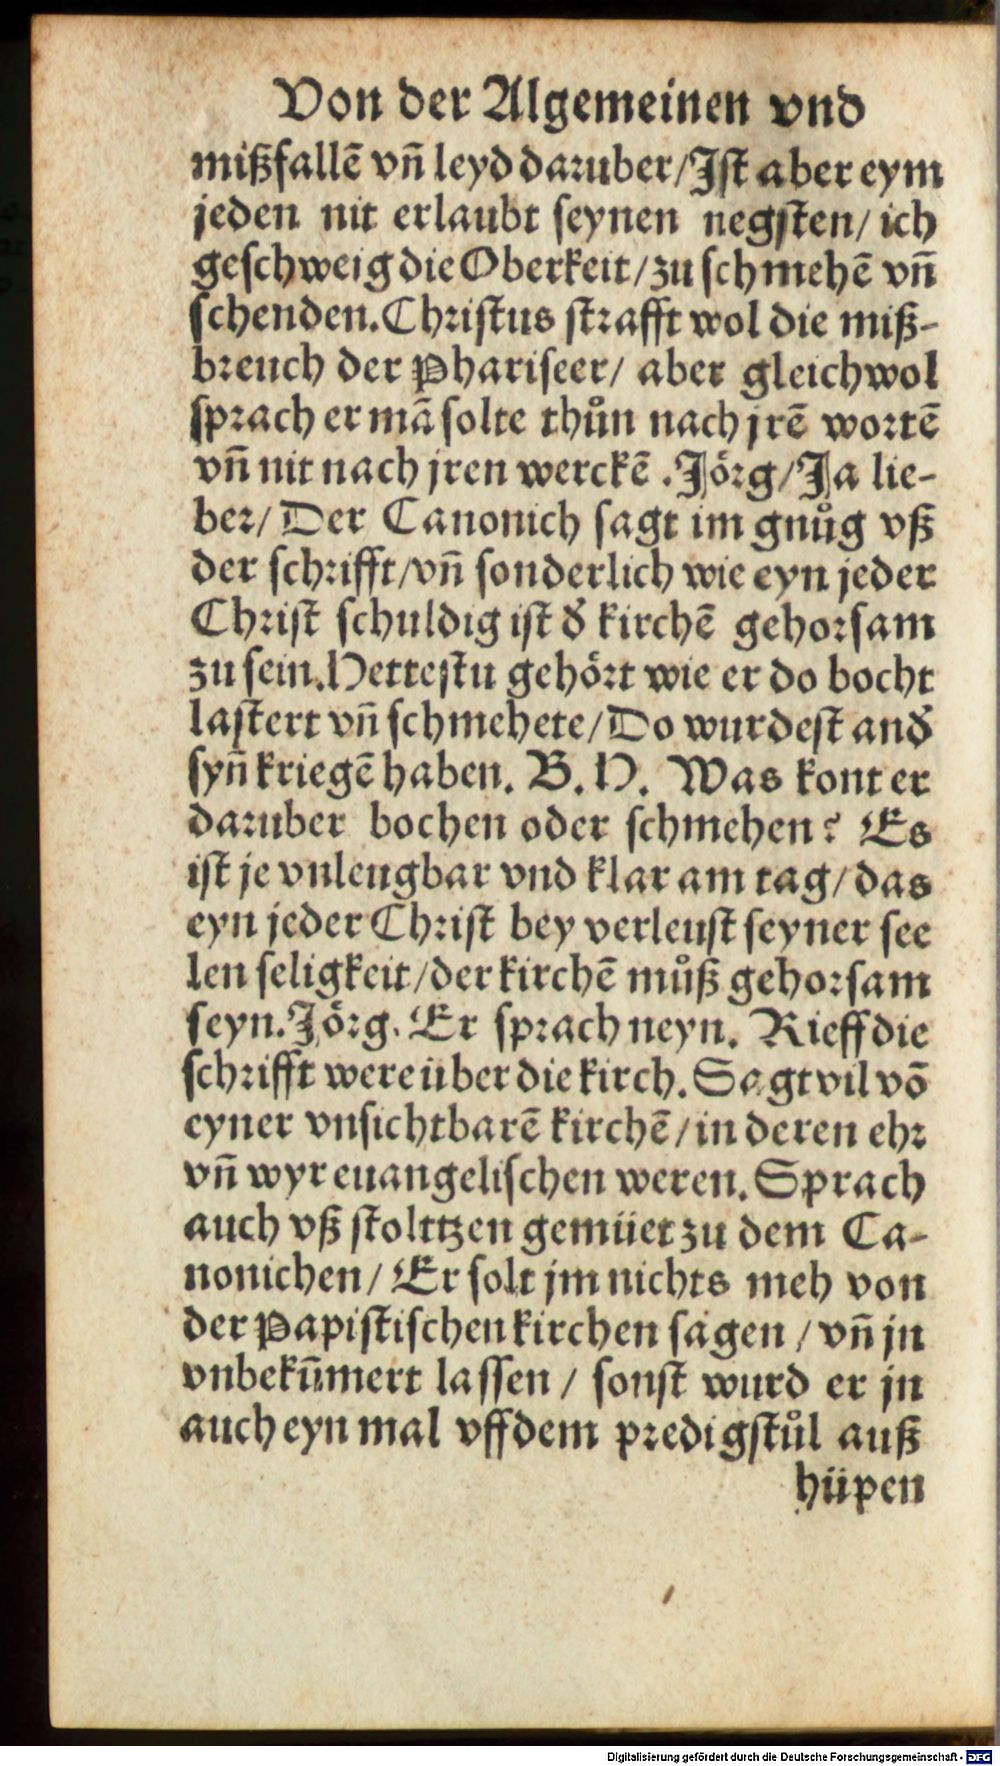 Von der Algemeinen vnd
mißfallẽ vñ leyd daruber/Jſt aber eym
jeden nit erlaubt ſeynen negſten/ ich
geſchweig die Oberkeit/zu ſchmehẽ vñ
ſchenden.Chriſtus ſtrafft wol die miß-
breuch der Phariſeer/ aber gleichwol
ſprach er mã ſolte thůn nach jrẽ wortẽ
vñ nit nach jren werckẽ .Jörg/Ja lie-
ber/ Der Canonich ſagt im gnůg vß
der ſchrifft/vñ ſonderlich wie eyn jeder
Chriſt ſchuldig iſt d̕ kirchẽ gehorſam
zu ſein.Hetteſtu gehört wie er do bocht
laſtert vñ ſchmehete/Do wurdeſt and̕
ſyñ kriegẽ haben. B.H. Was kont er
daruber bochen oder ſchmehen? Es
iſt je vnleugbar vnd klar am tag/das
eyn jeder Chriſt bey verleuſt ſeyner ſee
len ſeligkeit/der kirchẽ můß gehorſam
ſeyn.Jörg. Er ſprach neyn. Rieff die
ſchrifft were über die kirch.Sagt vil võ
eyner vnſichtbarẽ kirchẽ/in deren ehr
vñ wyr euangeliſchen weren.Sprach
auch vß ſtolttzen gemüet zu dem Ca-
nonichen/ Er ſolt jm nichts meh von
der Papiſtiſchen kirchen ſagen /vñ jn
vnbekũmert laſſen/ ſonſt wurd er jn
auch eyn mal vff dem predigſtůl auß
hüpen
Digitalisierung gefördert durch die Deutsche Forschungsgemeinschaft - DFG